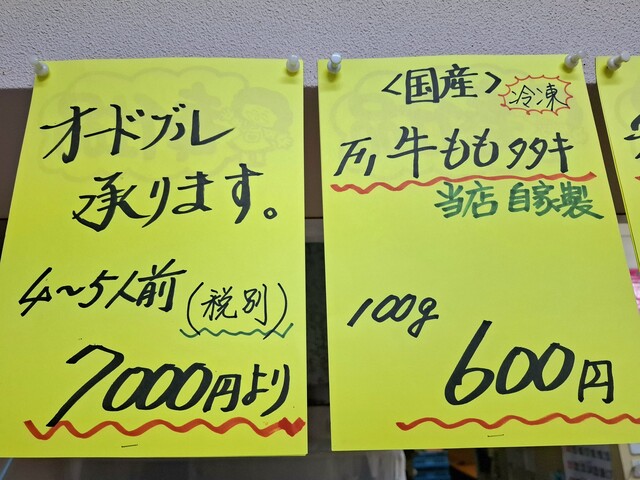 オードブル
承ります。
4~5人前(税別)
7000円より
<国産>
冷凍
牛ももタタキ
当店自家製
100g
600円